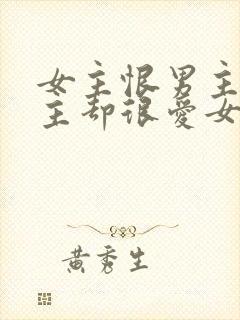 女主恨男主
主却很爱女
黄秀生